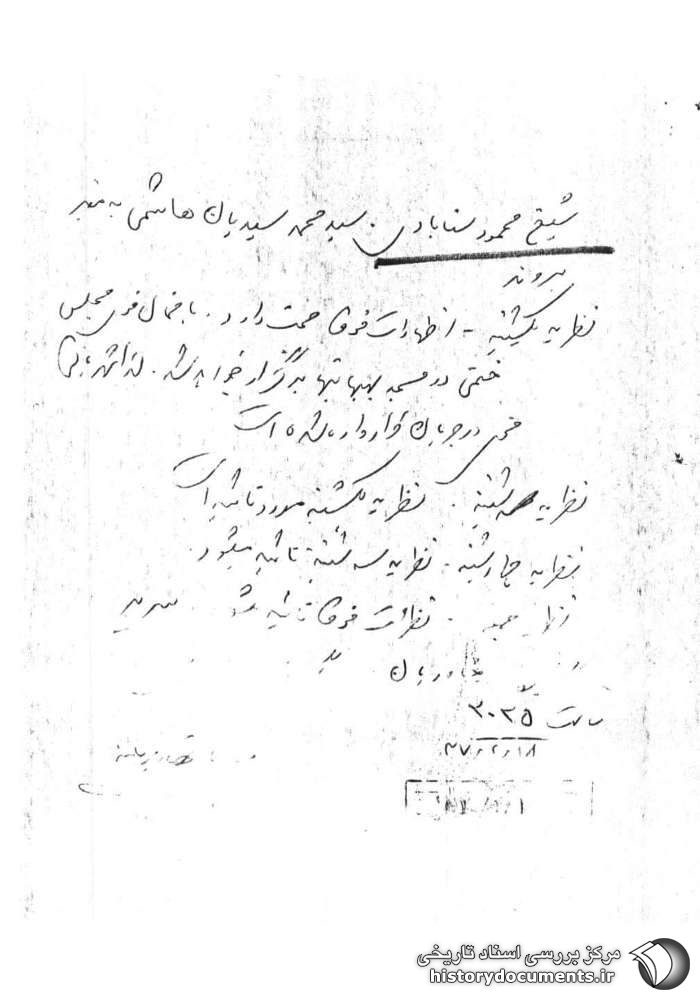 شیخ محمود سنابادی. سید محمد سیدیان هاشمی به منبر
بروند
نظریه یکشنبه - اظهارات فوق صحت دارد. باحتمال قوی مجلس
ختمی در مسجد بهبهانیها برگزار خواهد شد. لذا شهربانی
قم در جریان قرار داده شده است
نظریه سه شنبه. نظریه یکشنبه مورد تائید است
نظریه چهارشنبه. نظریه سه شنبه تائید میشود.
نظریه جمعه. نظرات فوق تائید میشود
ساعت ۲۰۳۵
۴۷،۲،۱۸
مرکز بررسی اسناد تاریخی
historydocuments.ir